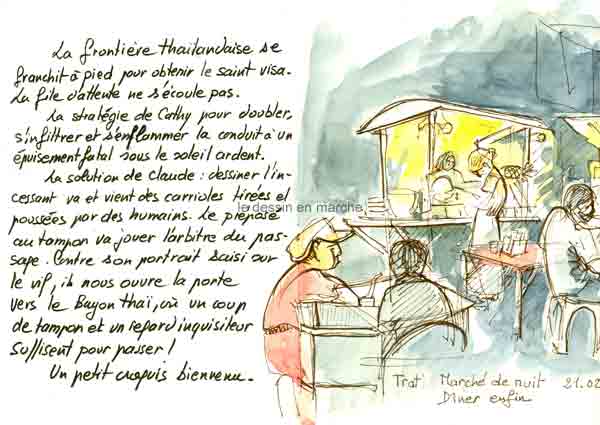 La frontière thaïlandaise se
franchit à pied pour obtenir le saint visa.
La file d'attente ne s'écoule pas.
La stratégie de Cathy pour doubler,
s'infiltrer et s'enflammer la conduit à un
épuisement fatal sous le soleil ardent.
La solution de Claude : dessiner l'in-
cessant va et vient des carrioles tirées et
poussées par des humains. Le préposé
au tampon va jouer l'arbitre du pas-
sage. Contre son portrait saisi sur
le vif, il nous ouvre la porte
vers le Bayon thaï, où un coup
de tampon et un regard inquisiteur
suffisent pour passer !
Un petit croquis bienvenu.
le dessin en marche
Trat Marché de nuit 21.02
Dîner enfin